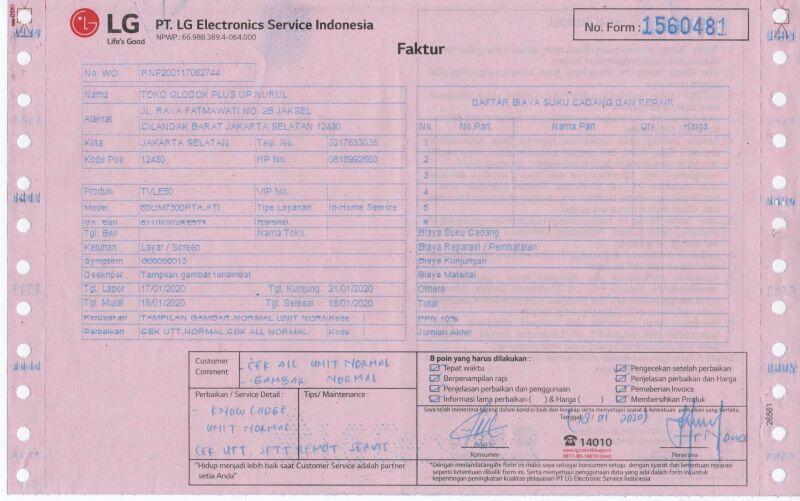 LG
Life's Good
PT. LG Electronics Service Indonesia
NPWP : 66.988.389.4-064.000
No. Form : 1560481
Faktur
No. WO RNP200117062744
Nama TOKO GLODOK PLUS UP NURUL
Alamat JL. RAYA FATMAWATI NO. 2B JAKSEL
CILANDAK BARAT JAKARTA SELATAN 12430
Kota JAKARTA SELATAN Telp. No. 0217653035
Kode Pos 12430 HP No. 0818992660
DAFTAR BIAYA SUKU CADANG DAN REPAIR
No. No.Part Nama Part Qty Harga
1
2
3
4
5
6
Produk TVLE60 VIP No.
Model 60UM7300PTA.ATI Tipe Layanan In-Home Service
Tgl. Beli Nama Toko
Keluhan Layar / Screen
Symptom
Deskripsi Tampilan gambar
Tgl. Lapor 17/01/2020 Tgl. Kunjung 21/01/2020
Tgl. Mulai 18/01/2020 Tgl. Selesai 18/01/2020
Kerusakan TAMPILAN GAMBAR NORMAL UNIT Kode
Perbaikan CEK UTT,NORMAL,CEK ALL NORMAL Kode
Biaya Suku Cadang
Biaya Reparasi / Pembatalan
Biaya Kunjungan
Biaya Material
Others
Total
PPN 10%
Jumlah Akhir
Customer
Comment
- CEK ALL UNIT NORMAL
- GAMBAR NORMAL
Perbaikan / Service Detail : Tips/ Maintenance :
- KNOW CADGE
UNIT NORMAL
CEK UTT, SETT REMOT SERVIS
"Hidup menjadi lebih baik saat Customer Service adalah partner
setia Anda"
8 poin yang harus dilakukan :
Tepat waktu
Berpenampilan rapi
Penjelasan perbaikan dan penggunaan
Informasi lama perbaikan ( ) & Harga ( )
Pengecekan setelah perbaikan
Penjelasan perbaikan dan Harga
Pemeberian Invoice
Membersihkan Produk
Saya telah menerima barang dalam kondisi baik dan lengkap serta menyetujui syarat & ketentuan perbaikan yang berlaku.
Tanggal (18 01 2020)
Konsumen
14010
www.lg.com/id/support
0811-80-14010 (sms)
Penerima
"Dengan menandatangani form ini maka saya sebagai konsumen setuju dengan syarat dan ketentuan reparasi
seperti ketentuan dibalik form ini. Serta menyetujui penggunaan data yang ada dalam form ini untuk
kepentingan peningkatan kualitas pelayanan PT LG Electronic Service Indonesia
26561